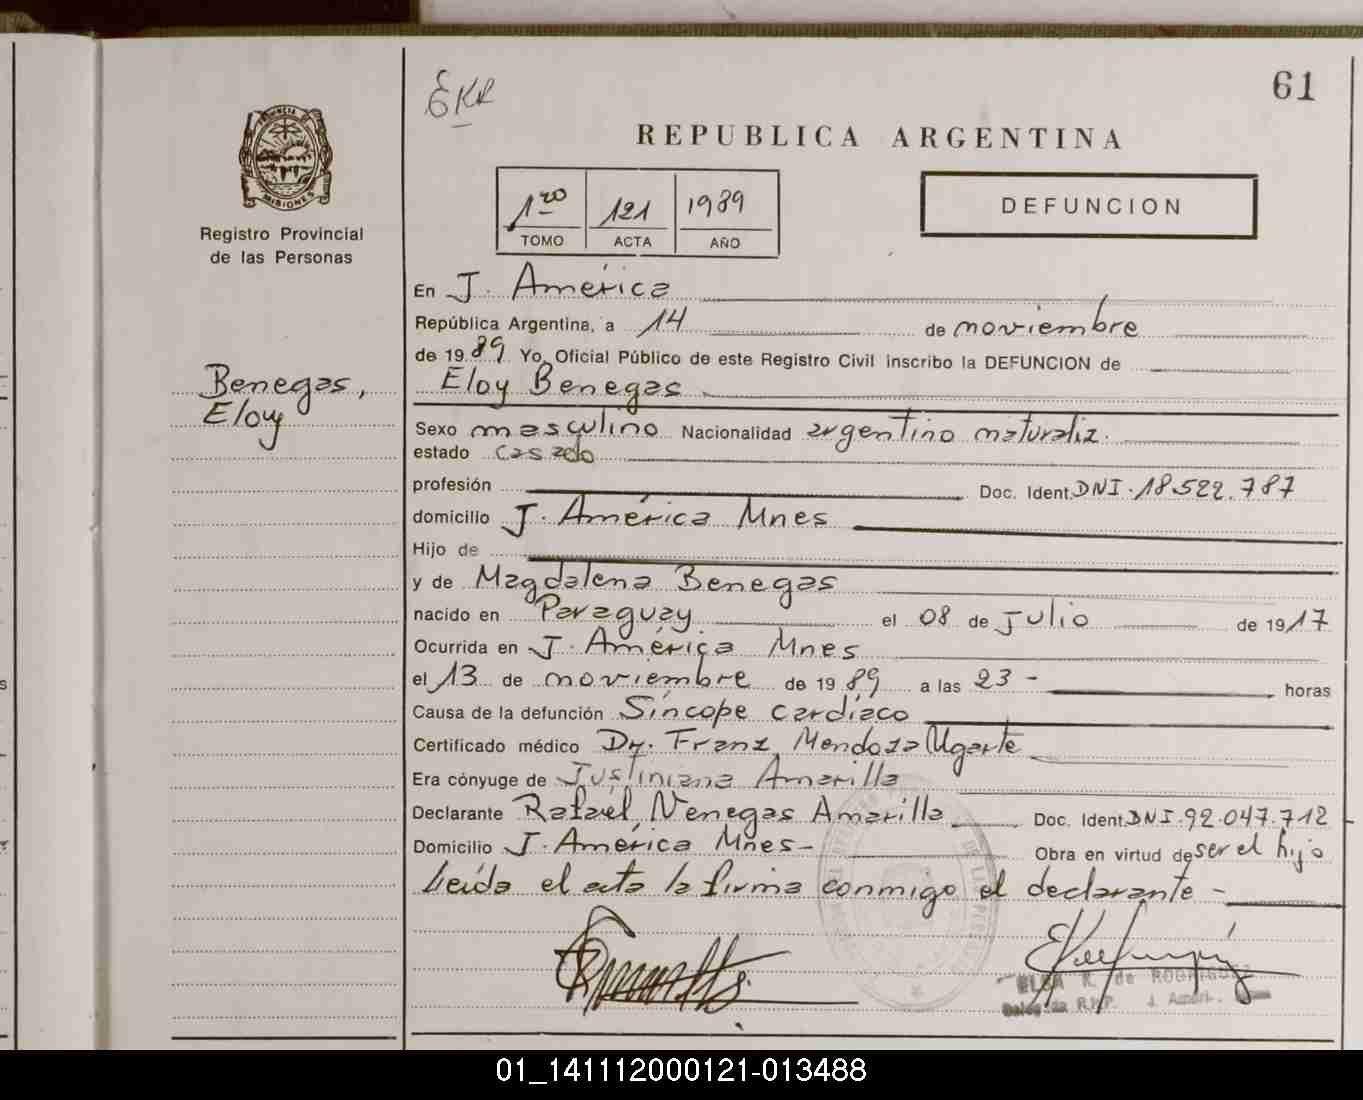 61
EKR
REPUBLICA ARGENTINA
PROVINCIA DE
MISIONES
Registro Provincial
de las Personas
1ro 121 1989
TOMO ACTA AÑO
DEFUNCION
Benegas,
Eloy
En J. América
República Argentina, a 14 de noviembre
de 1989 Yo, Oficial Público de este Registro Civil inscribo la DEFUNCION de
Eloy Benegas
Sexo masculino Nacionalidad argentino naturaliz.
estado casado
profesión Doc. Ident. DNI. 18.522.787
domicilio J. América Mnes
Hijo de
y de Magdalena Benegas
nacido en Paraguay el 08 de julio de 1917
Ocurrida en J. América Mnes
el 13 de noviembre de 1989 a las 23 - horas
Causa de la defunción Síncope cardíaco
Certificado médico Dr. Franz Mendoza Ugarte
Era cónyuge de Justiniana Amarilla
Declarante Rafael Venegas Amarilla Doc. Ident. DNI. 92.047.712
Domicilio J. América Mnes- Obra en virtud de ser el hijo
Leída el acta la firma conmigo el declarante -
ELSA K. de RODRIGUEZ
01_141112000121-013488